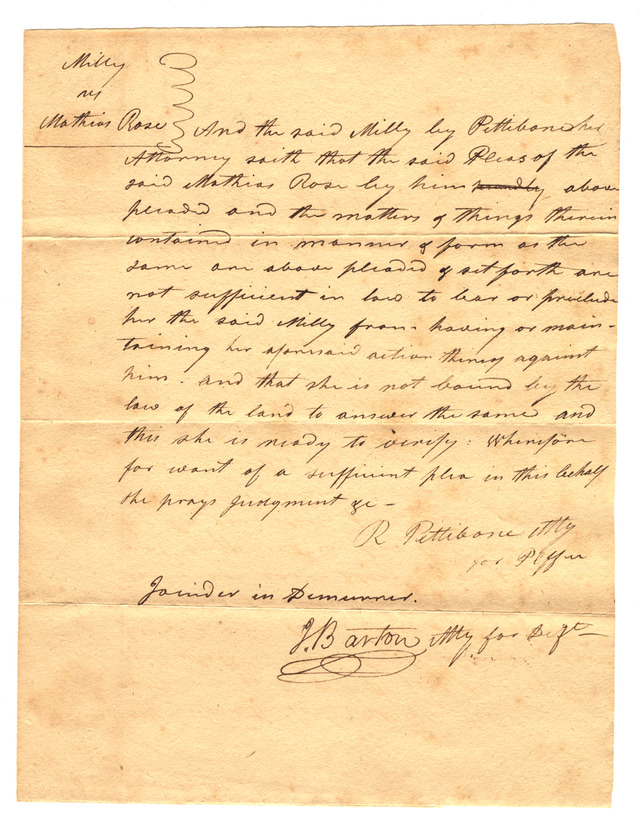 Milly
vs
Mathias Rose And the said Milly by Pettibone her
Attorney saith that the said Pleas of the
said Mathias Rose by him above
pleaded and the matters & things therein
contained in manner & form as the
same are above pleaded & set forth are
not sufficient in law to bar or preclude
her the said Milly from having or main-
taining her aforesaid action thereof against
him. and that she is not bound by the
law of the land to answer the same and
this she is ready to verify: Wherefore
for want of a sufficient plea in this behalf
she prays Judgment &c -
R Pettibone Atty
for Plffee
Joinder in Demurrer.
J. Barton Atty for Deft